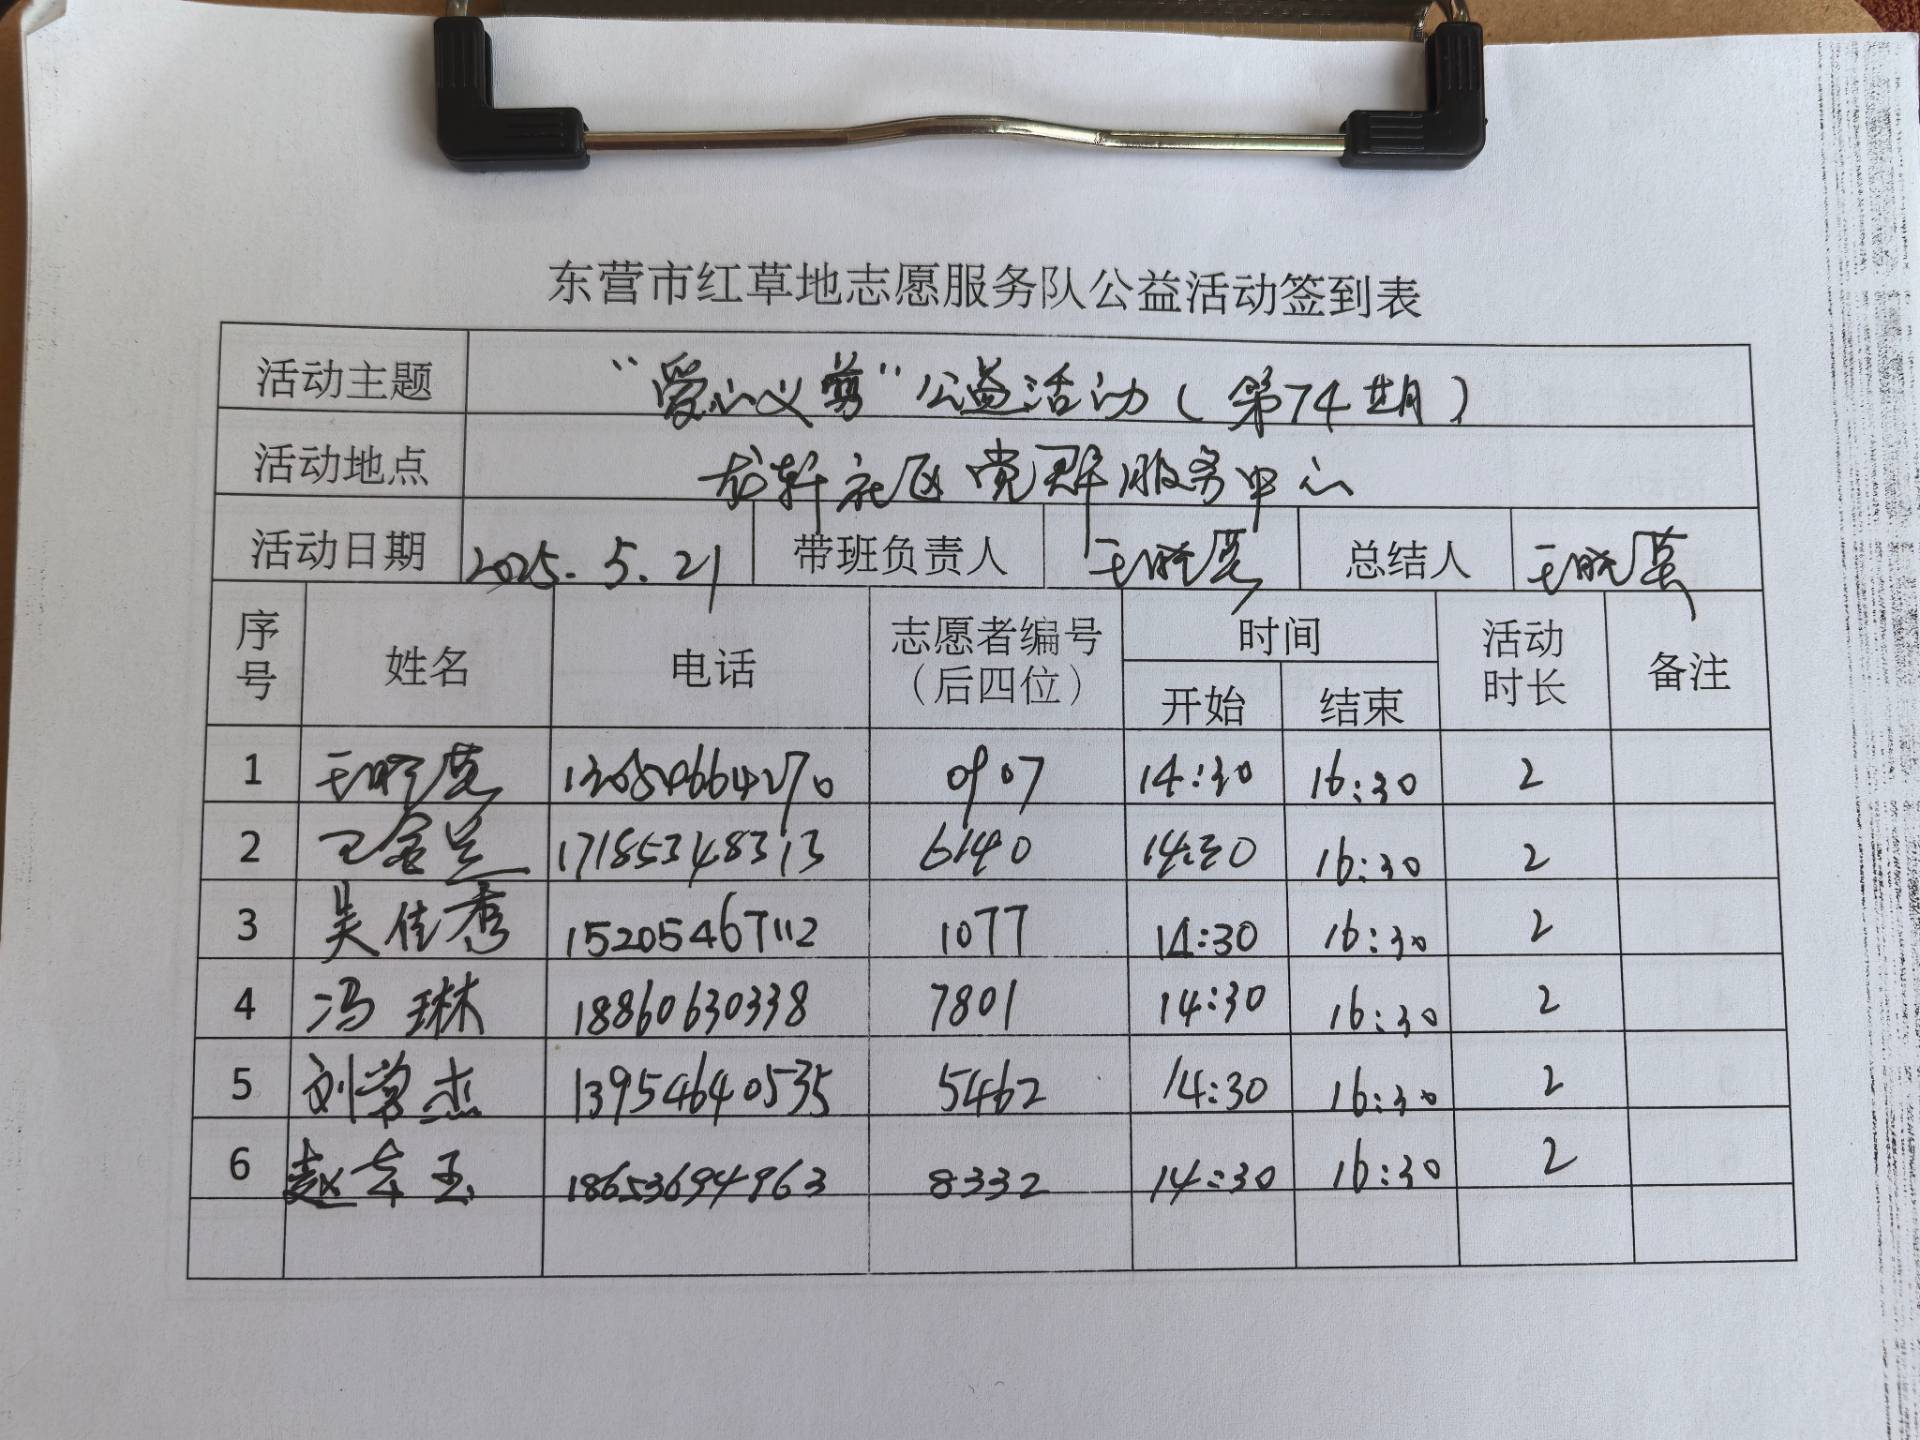 东营市红草地志愿服务队公益活动签到表
活动主题 “爱心义剪”公益活动(第74期)
活动地点 龙轩社区党群服务中心
活动日期 2025.5.21 带班负责人 王晓英 总结人 王晓英
序号 姓名 电话 志愿者编号（后四位） 时间 开始 结束 活动时长 备注
1 王晓英 0907 14:30 16:30 2
2 王金兰 17185348313 6140 14:30 16:30 2
3 吴佳秀 15205467112 1077 14:30 16:30 2
4 冯琳 18860630338 7801 14:30 16:30 2
5 刘曾杰 13954640535 5462 14:30 16:30 2
6 赵玉 18653694963 8332 14:30 16:30 2